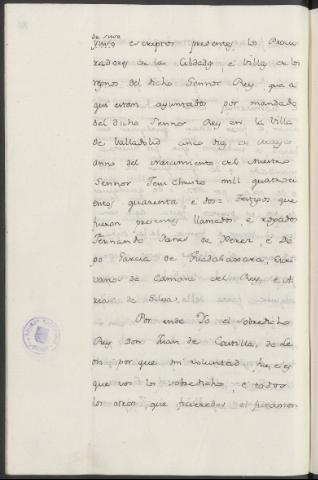 de suso
escriptos presentes, los Procu-
radores de las Cibdades, é Villas de los
regnos del dicho Sennor Rey, que a
qui estan ayuntados por mandado
del dicho Sennor Rey en la Villa
de Valladolid cinco dias de mayo
anno del nascimiento del Nuestro
Sennor Jesu Christo mil quatroci
entos quarenta é dos = Testigos que
fueron presentes llamados, é rogados
Fernando Yanes de Xerez, é Die
go Garcia de Guadalaxara, Escri
vanos de Camara del Rey, é A
rias de Silva,
Por ende Yo el sobredicho
Rey don Juan de Castilla, de Le
on, por que mi voluntad fue, é es
que vos los sobredichos, é todos
los otros que ficieredes el juramen